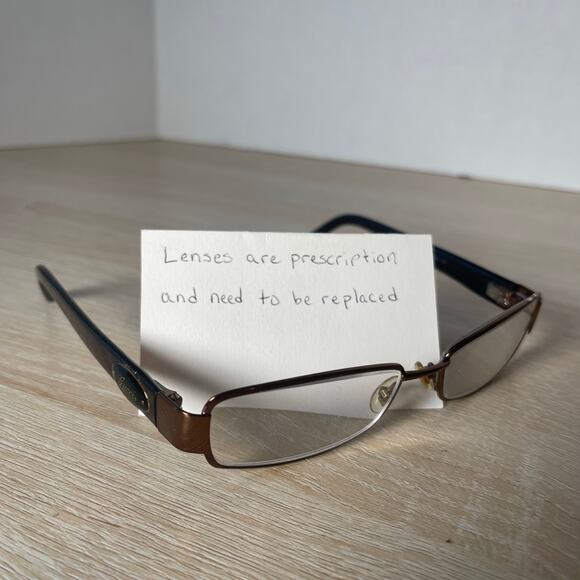 Lenses are prescription
and need to be replaced